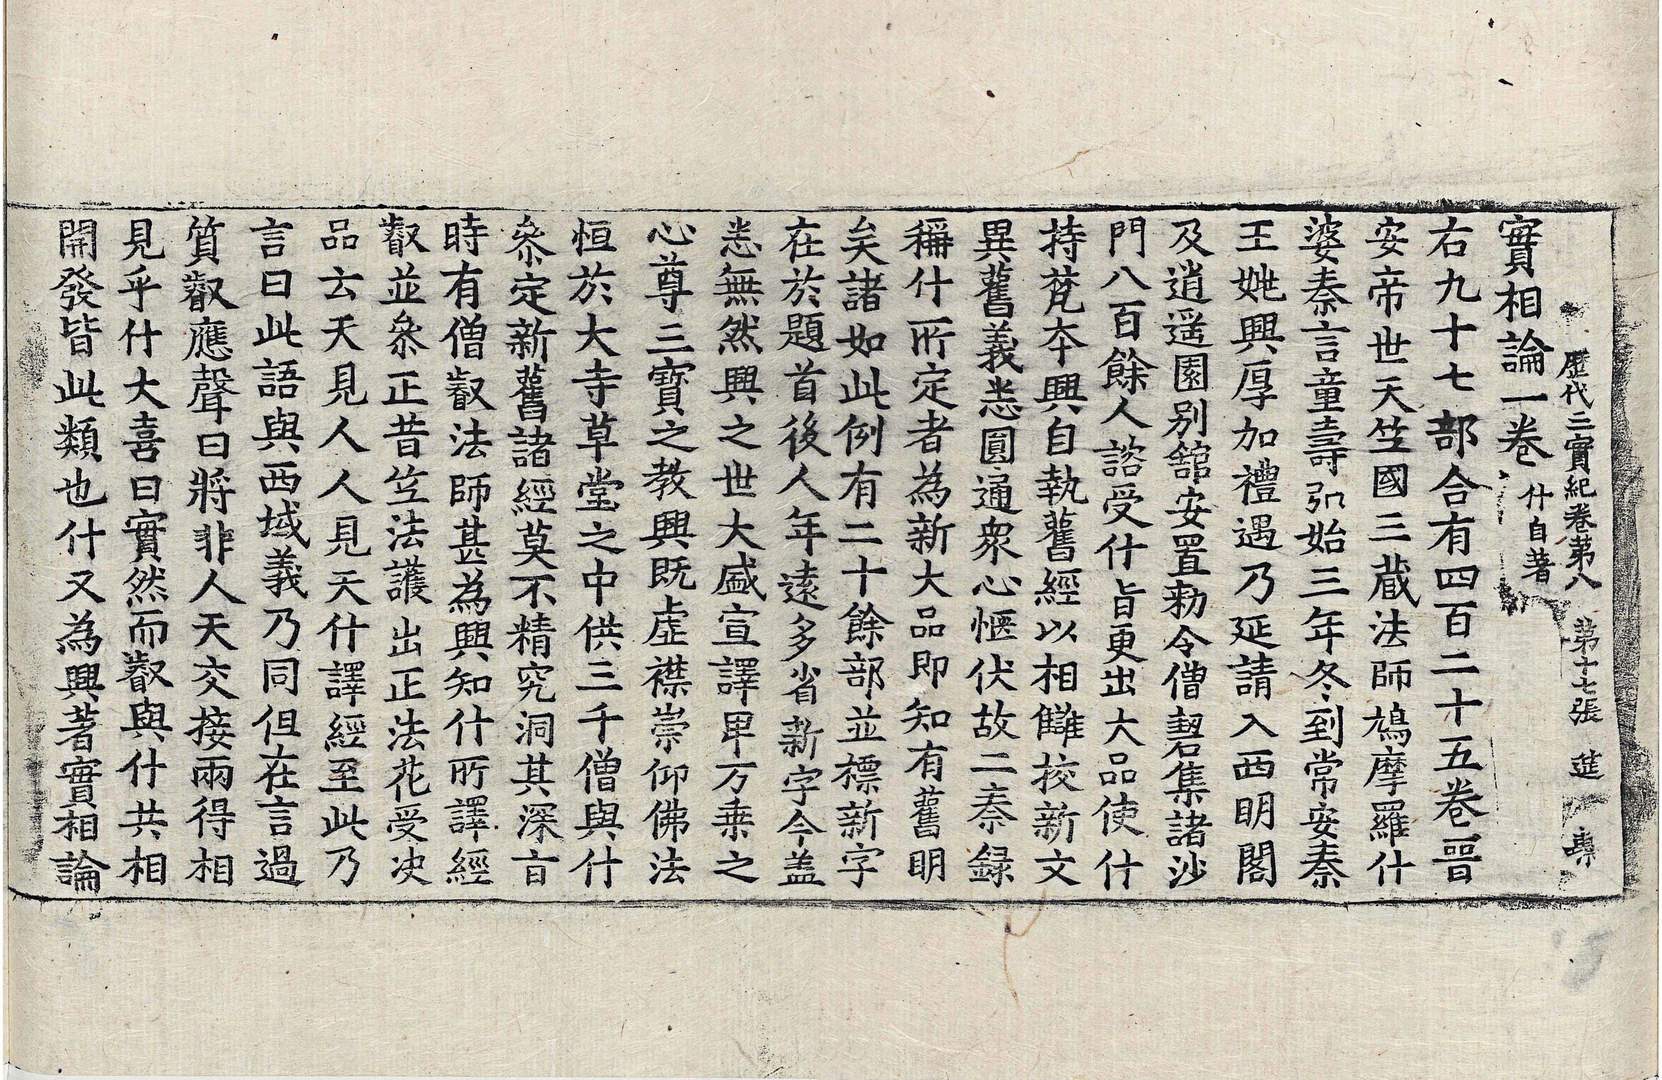 歷代三寶紀卷第八 第十七張 莚
實相論一卷 什自著
右九十七部合有四百二十五卷晉
安帝世天竺國三藏法師鳩摩羅什
婆秦言童壽弘始三年冬到常安秦
王姚興厚加禮遇乃延請入西明閣
及逍遥園別舘安置勑令僧䂮集諸沙
門八百餘人諮受什旨更出大品使什
持梵夲興自執舊經以相讎挍新文
異舊義悉圓通衆心愜伏故二秦録
稱什所定者為新大品即知有舊明
矣諸如此例有二十餘部並標新字
在於題首後人年遠多省新字今盖
悉無然興之世大盛宣譯甲万乗之
心尊三寶之教興既虛襟崇仰佛法
恒於大寺草堂之中供三千僧與什
叅定新舊諸經莫不精究洞其深旨
時有僧叡法師甚為興知什所譯經
叡並叅正昔竺法護出正法花受决
品云天見人人見天什譯經至此乃
言曰此語與西域義乃同但在言過
質叡應聲曰將非人天交接兩得相
見乎什大喜曰實然而叡與什共相
開發皆此類也什又為興著實相論